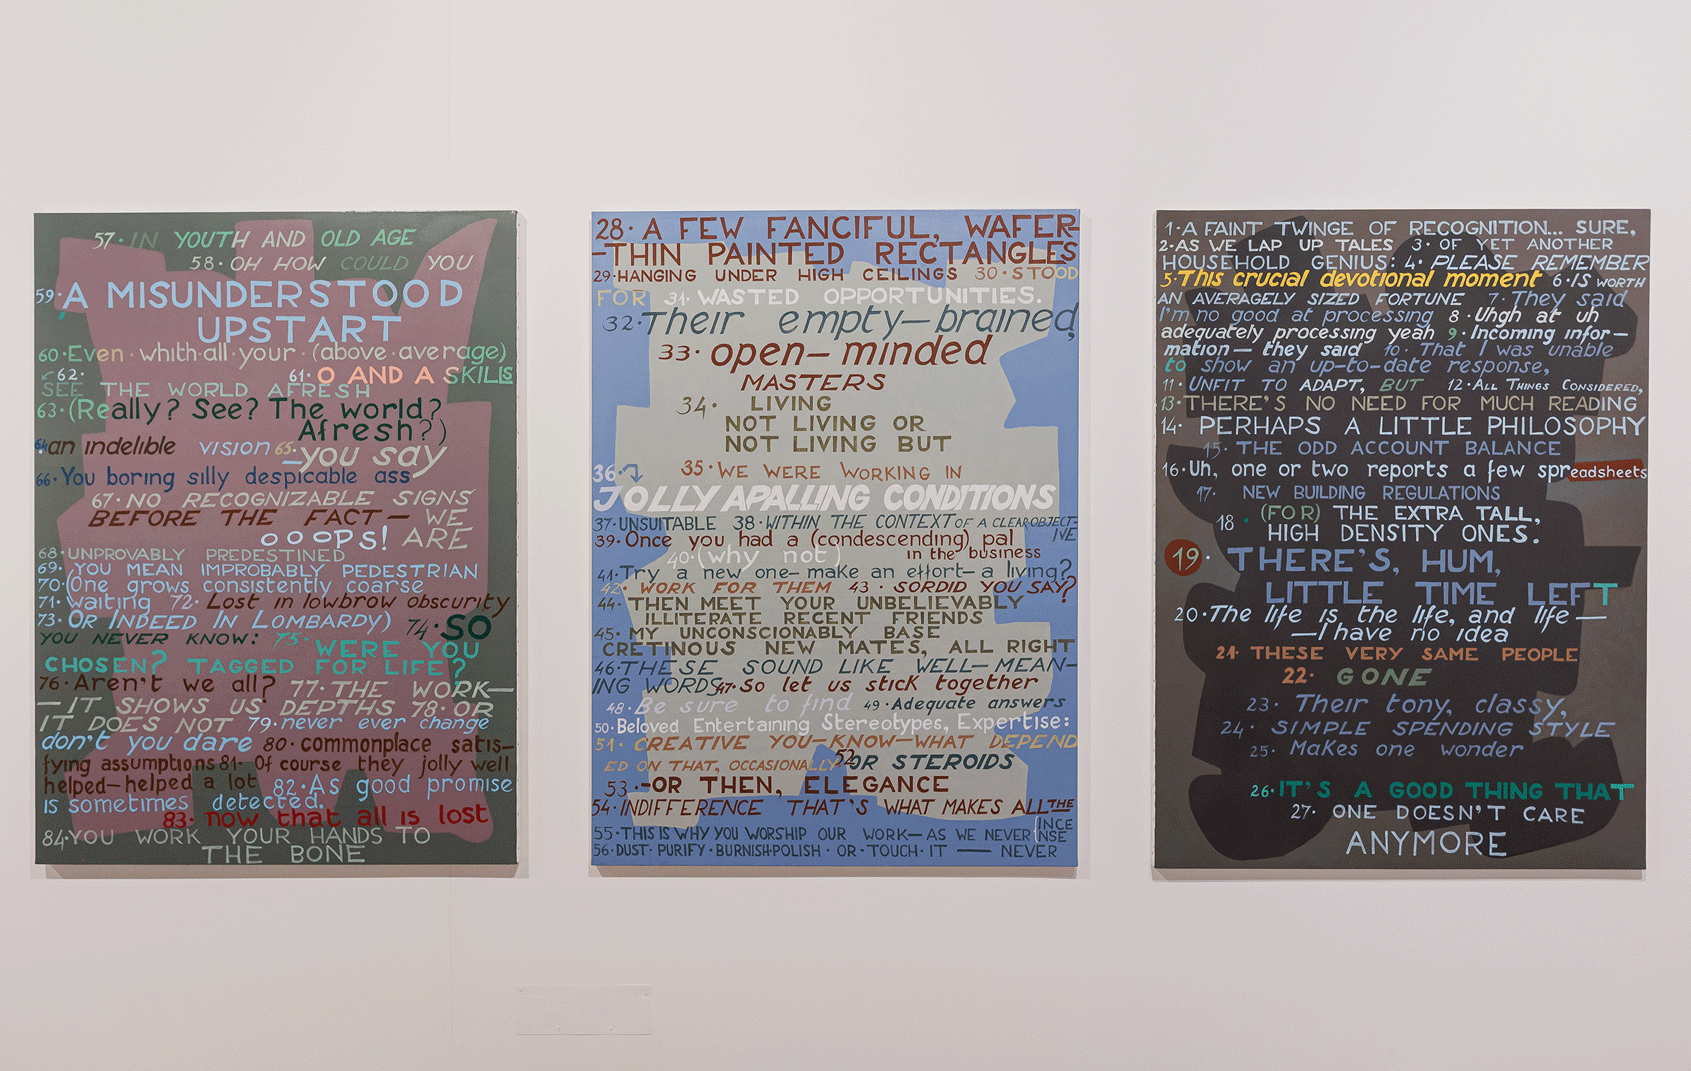 57· IN YOUTH AND OLD AGE
58· OH HOW COULD YOU
59· A MISUNDERSTOOD
UPSTART
60· Even · whith·all·your·(above·average)
62· 61· O AND A SKILLS
SEE THE WORLD AFRESH
63· (Really? See? The world?
Afresh?)
64· an indelible vision 65·
—you say
66· You boring silly despicable ass
67· NO RECOGNIZABLE SIGNS
BEFORE THE FACT— WE
OOOPS! ARE
68· UNPROVABLY PREDESTINED
69· YOU MEAN IMPROBABLY PEDESTRIAN
70· (One grows consistently coarse
71· waiting 72· Lost in lowbrow obscurity
73· OR INDEED IN LOMBARDY) 74· SO
YOU NEVER KNOW: 75· WERE YOU
CHOSEN? TAGGED FOR LIFE?
76· Aren't we all? 77· THE WORK—
—IT SHOWS US DEPTHS 78· OR
IT DOES NOT 79· never ever change
don't you dare 80· commonplace satis-
fying assumptions 81· Of course they jolly well
helped—helped a lot 82· As good promise
is sometimes detected.
83· now that all is lost
84· YOU WORK YOUR HANDS TO
THE BONE
28· A FEW FANCIFUL, WAFER-
-THIN PAINTED RECTANGLES
29· HANGING UNDER HIGH CEILINGS 30· STOOD
FOR 31· WASTED OPPORTUNITIES.
32· Their empty—brained,
33· open—minded
MASTERS
34· LIVING
NOT LIVING OR
NOT LIVING BUT
36· 35· WE WERE WORKING IN
JOLLY APALLING CONDITIONS
37· UNSUITABLE 38· WITHIN THE CONTEXT OF A CLEAR OBJECT-
IVE
39· Once you had a (condescending) pal
40· (why not) in the business
41· Try a new one— make an effort— a living?
42· WORK FOR THEM 43· SORDID YOU SAY?
44· THEN MEET YOUR UNBELIEVABLY
ILLITERATE RECENT FRIENDS
45· MY UNCONSCIONABLY BASE
CRETINOUS NEW MATES, ALL RIGHT
46· THESE SOUND LIKE WELL—MEAN-
ING WORDS 47· So let us stick together
48· Be sure to find 49· Adequate answers
50· Beloved Entertaining Stereotypes, Expertise:
51· CREATIVE YOU—KNOW—WHAT DEPEND
ED ON THAT, OCCASIONALLY 52· OR STEROIDS
53· -OR THEN, ELEGANCE
54· INDIFFERENCE THAT'S WHAT MAKES ALL THE
55· THIS IS WHY YOU WORSHIP OUR WORK—AS WE NEVER INCE
NSE
56· DUST·PURIFY·BURNISH·POLISH·OR·TOUCH·IT — NEVER
1· A FAINT TWINGE OF RECOGNITION... SURE,
2· AS WE LAP UP TALES 3· OF YET ANOTHER
HOUSEHOLD GENIUS: 4· PLEASE REMEMBER
5· This crucial devotional moment 6· IS WORTH
AN AVERAGELY SIZED FORTUNE 7· They said
I'm no good at processing 8· Uhgh at uh
adequately processing yeah 9· Incoming infor—
mation— they said 10· That I was unable
to show an up-to-date response,
11· UNFIT TO ADAPT, BUT 12· ALL THINGS CONSIDERED,
13· THERE'S NO NEED FOR MUCH READING
14· PERHAPS A LITTLE PHILOSOPHY
15· THE ODD ACCOUNT BALANCE
16· Uh, one or two reports a few spreadsheets
17· NEW BUILDING REGULATIONS
18· (FOR) THE EXTRA TALL,
HIGH DENSITY ONES.
19· THERE'S, HUM,
LITTLE TIME LEFT
20· The life is the life, and life —
—I have no idea
21· THESE VERY SAME PEOPLE
22· GONE
23· Their tony, classy,
24· SIMPLE SPENDING STYLE
25· Makes one wonder
26· IT'S A GOOD THING THAT
27· ONE DOESN'T CARE
ANYMORE